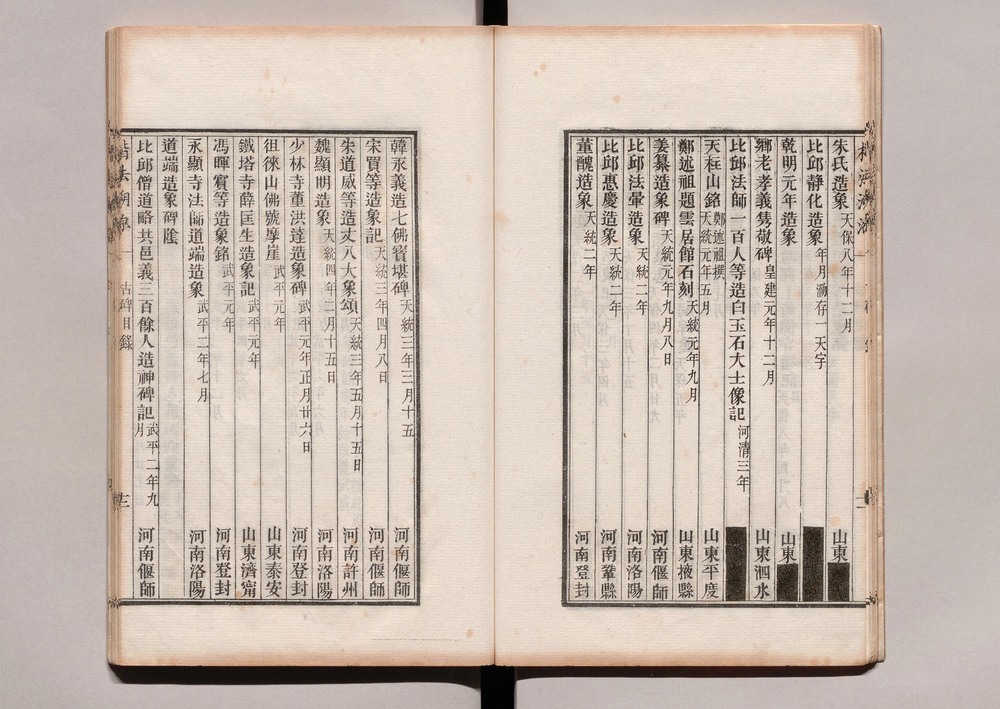 朱氏造象 天保八年十二月 山東
比邱靜化造象 年月泐存一天字
乾明元年造象 山東
鄉老孝義雋敬碑 皇建元年十二月 山東泗水
比邱法師一百人等造白玉石大士像記 河清三年
天柱山銘 鄭述祖撰 天統元年五月 山東平度
鄭述祖題雲居館石刻 天統元年九月 山東掖縣
姜纂造象碑 天統元年九月八日 河南偃師
比邱法暈造象 天統二年 河南洛陽
比邱惠慶造象 天統二年 河南鞏縣
董醜造象 天統二年 河南登封
韓永義造七佛寶堪碑 天統三年三月十五 河南偃師
宋買等造象記 天統三年四月八日 河南偃師
朱道威等造丈八大象頌 天統三年五月十五日 河南許州
魏顯明造象 天統四年二月十五日 河南洛陽
少林寺董洪達造象碑 武平元年正月廿六日 河南登封
徂徠山佛號摩崖 武平元年 山東泰安
鐵塔寺薛匡生造象記 武平元年 山東濟甯
馮暉賓等造象銘 武平元年 河南登封
永顯寺法師道端造象 武平二年七月 河南洛陽
道端造象碑陰
比邱僧道略共邑義三百餘人造神碑記 武平二年九月 河南偃師
古碑目錄